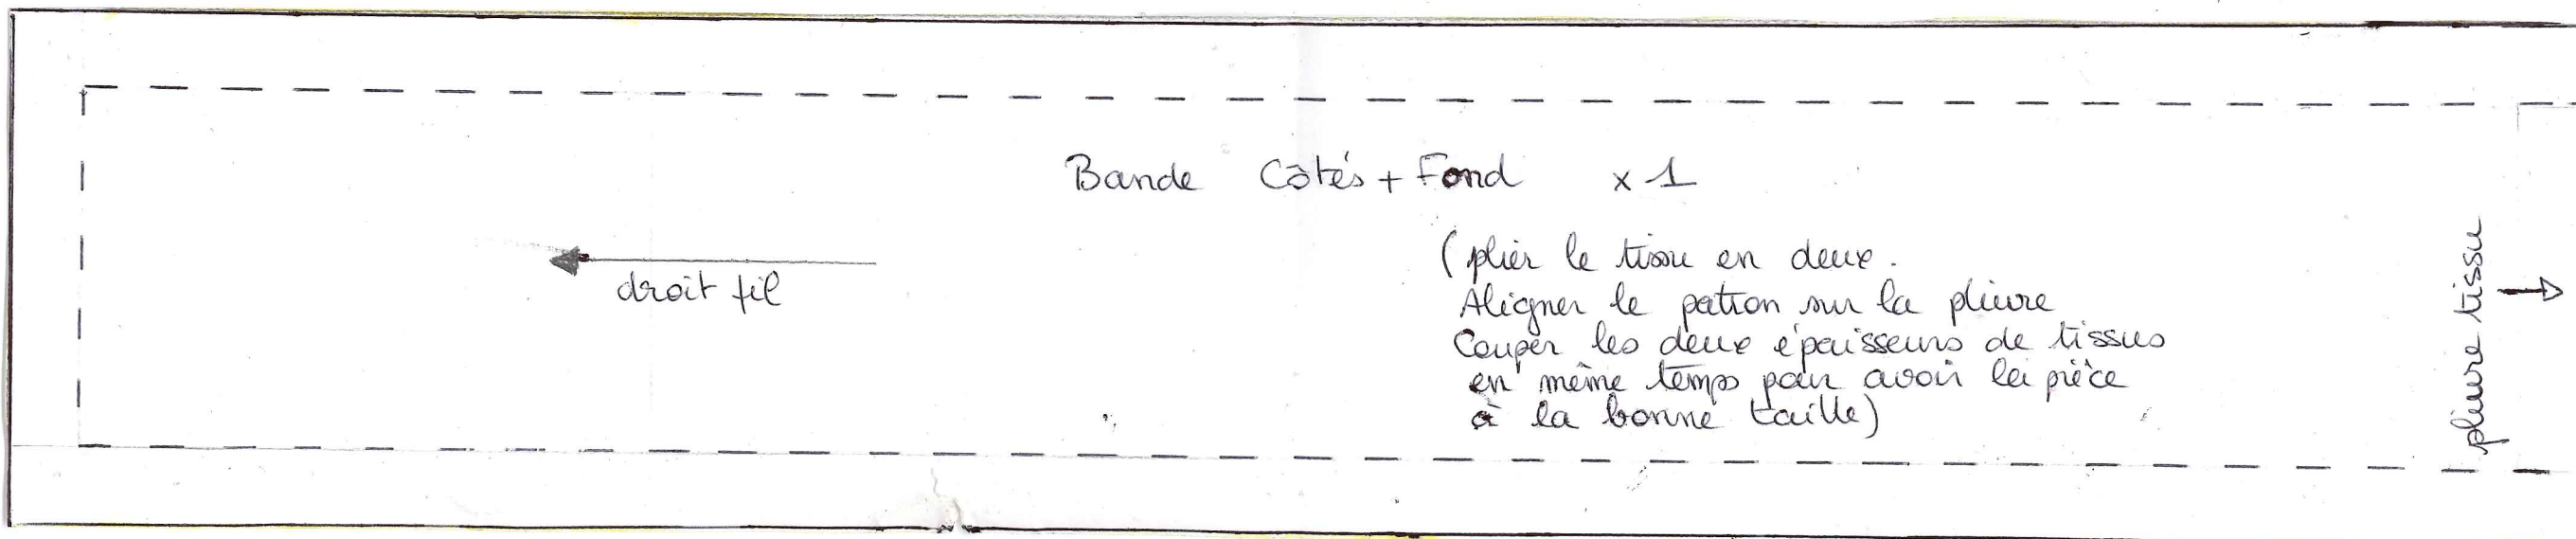 Bande Côtés + Fond x 1
droit fil
(plier le tissu en deux.
Aligner le patron sur la pliure
Couper les deux épaisseurs de tissus
en même temps pour avoir la pièce
à la bonne taille)
pliure tissu